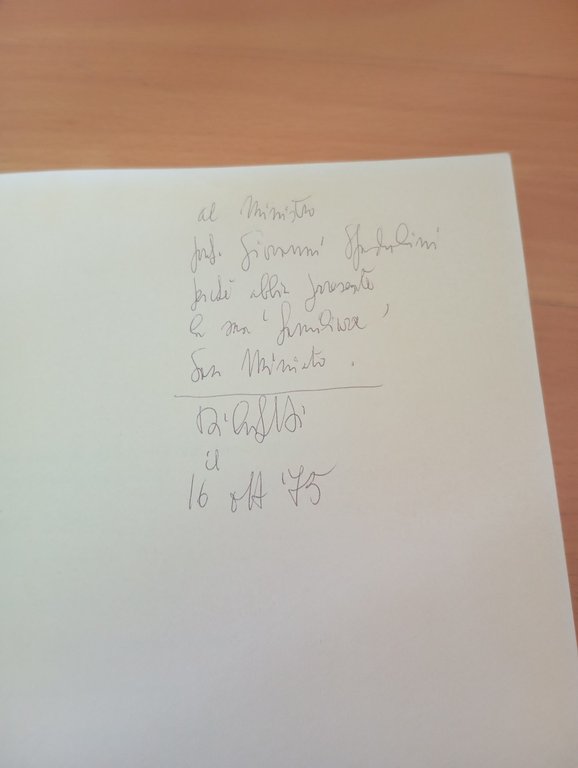 al Ministro
prof. Giovanni Spadolini
perché abbia presente
la sua 'familiare'
San Miniato.
il
16 ott '75